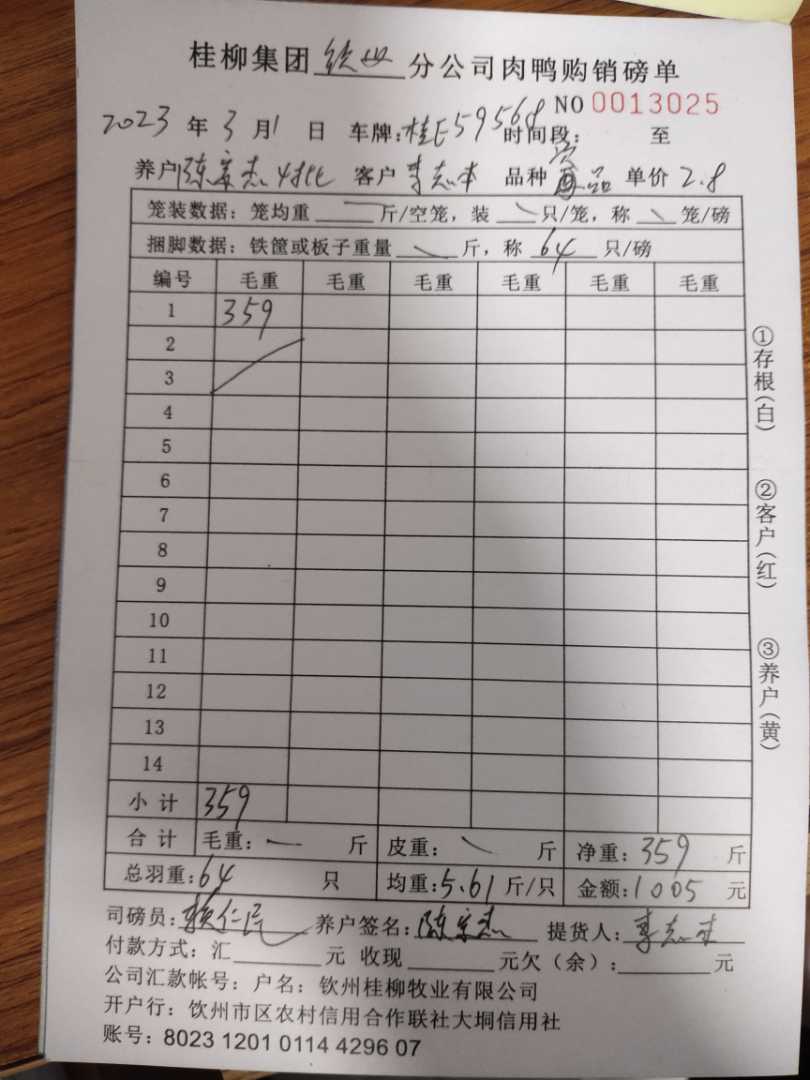 桂柳集团 钦州 分公司肉鸭购销磅单
NO 0013025
2023 年 3 月 1 日 车牌: 桂E59568 时间段: 至
养户 陈家杰 4批 客户 李志本 品种 单价 2.8
笼装数据: 笼均重 斤/空笼, 装 只/笼, 称 笼/磅
捆脚数据: 铁筐或板子重量 斤, 称 64 只/磅
编号 毛重 毛重 毛重 毛重 毛重 毛重
1 359
2
3
4
5
6
7
8
9
10
11
12
13
14
小计 359
合计 毛重: 斤 皮重: 斤 净重: 359 斤
总羽重: 64 只 均重: 5.61 斤/只 金额: 1005 元
司磅员: 仁民 养户签名: 陈家杰 提货人: 李志本
付款方式: 汇 元 收现 元欠(余): 元
公司汇款帐号: 户名: 钦州桂柳牧业有限公司
开户行: 饮州市区农村信用合作联社大垌信用社
账号: 8023 1201 0114 4296 07
①存根(白)
②客户(红)
③养户(黄)